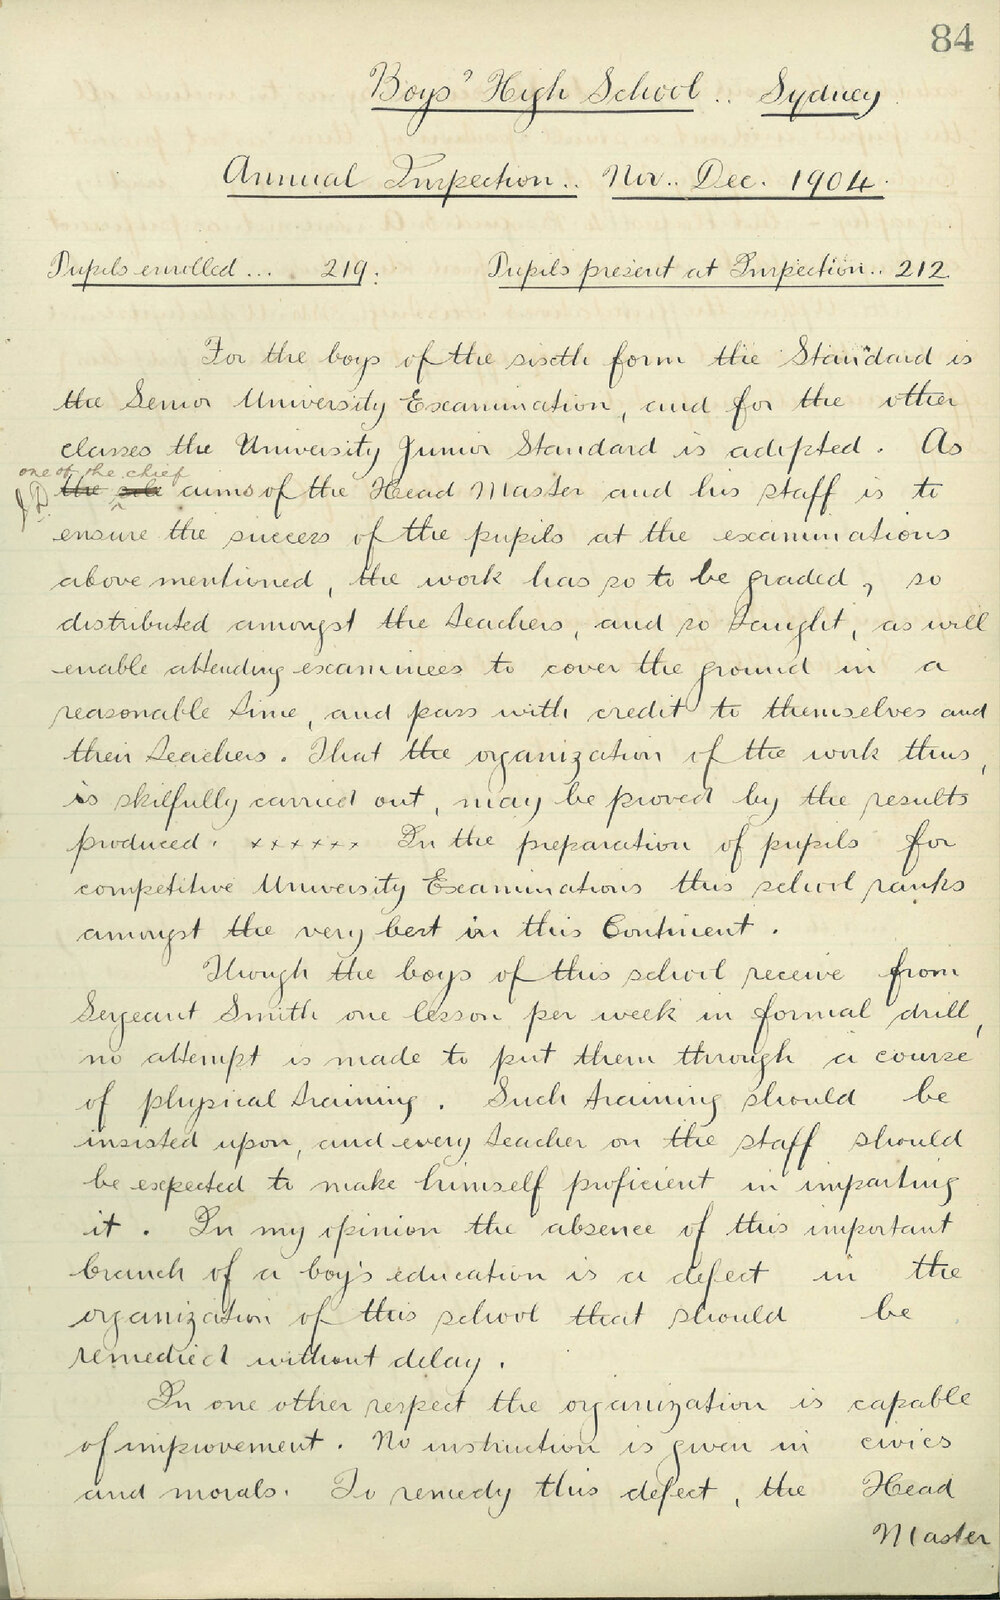 84
Boys' High School .. Sydney
Annual Inspection .. Nov.. Dec. 1904.
Pupils enrolled ... 219.
Pupils present at Inspection .. 212
For the boys of the sixth form the Standard is
the Senior University Examination, and for the other
classes the University Junior Standard is adopted. As
one of the chief
J.D. the sole aims of the Head Master and his staff is to
ensure the success of the pupils at the examinations
above mentioned, the work has so to be graded, so
distributed amongst the teachers, and so taught, as will
enable attending examinees to cover the ground in a
reasonable time, and pass with credit to themselves and
their teachers. That the organization of the work thus,
is skilfully carried out, may be proved by the results
produced. x x x x x x In the preparation of pupils for
competitive University Examinations this school ranks
amongst the very best in this Continent.
Though the boys of this school receive from
Sergeant Smith one lesson per week in formal drill,
no attempt is made to put them through a course
of physical training. Such training should be
insisted upon, and every teacher on the staff should
be expected to make himself proficient in imparting
it. In my opinion the absence of this important
branch of a boy's education is a defect in the
organization of this school that should be
remedied without delay.
In one other respect the organization is capable
of improvement. No instruction is given in civics
and morals. To remedy this defect, the Head
Master